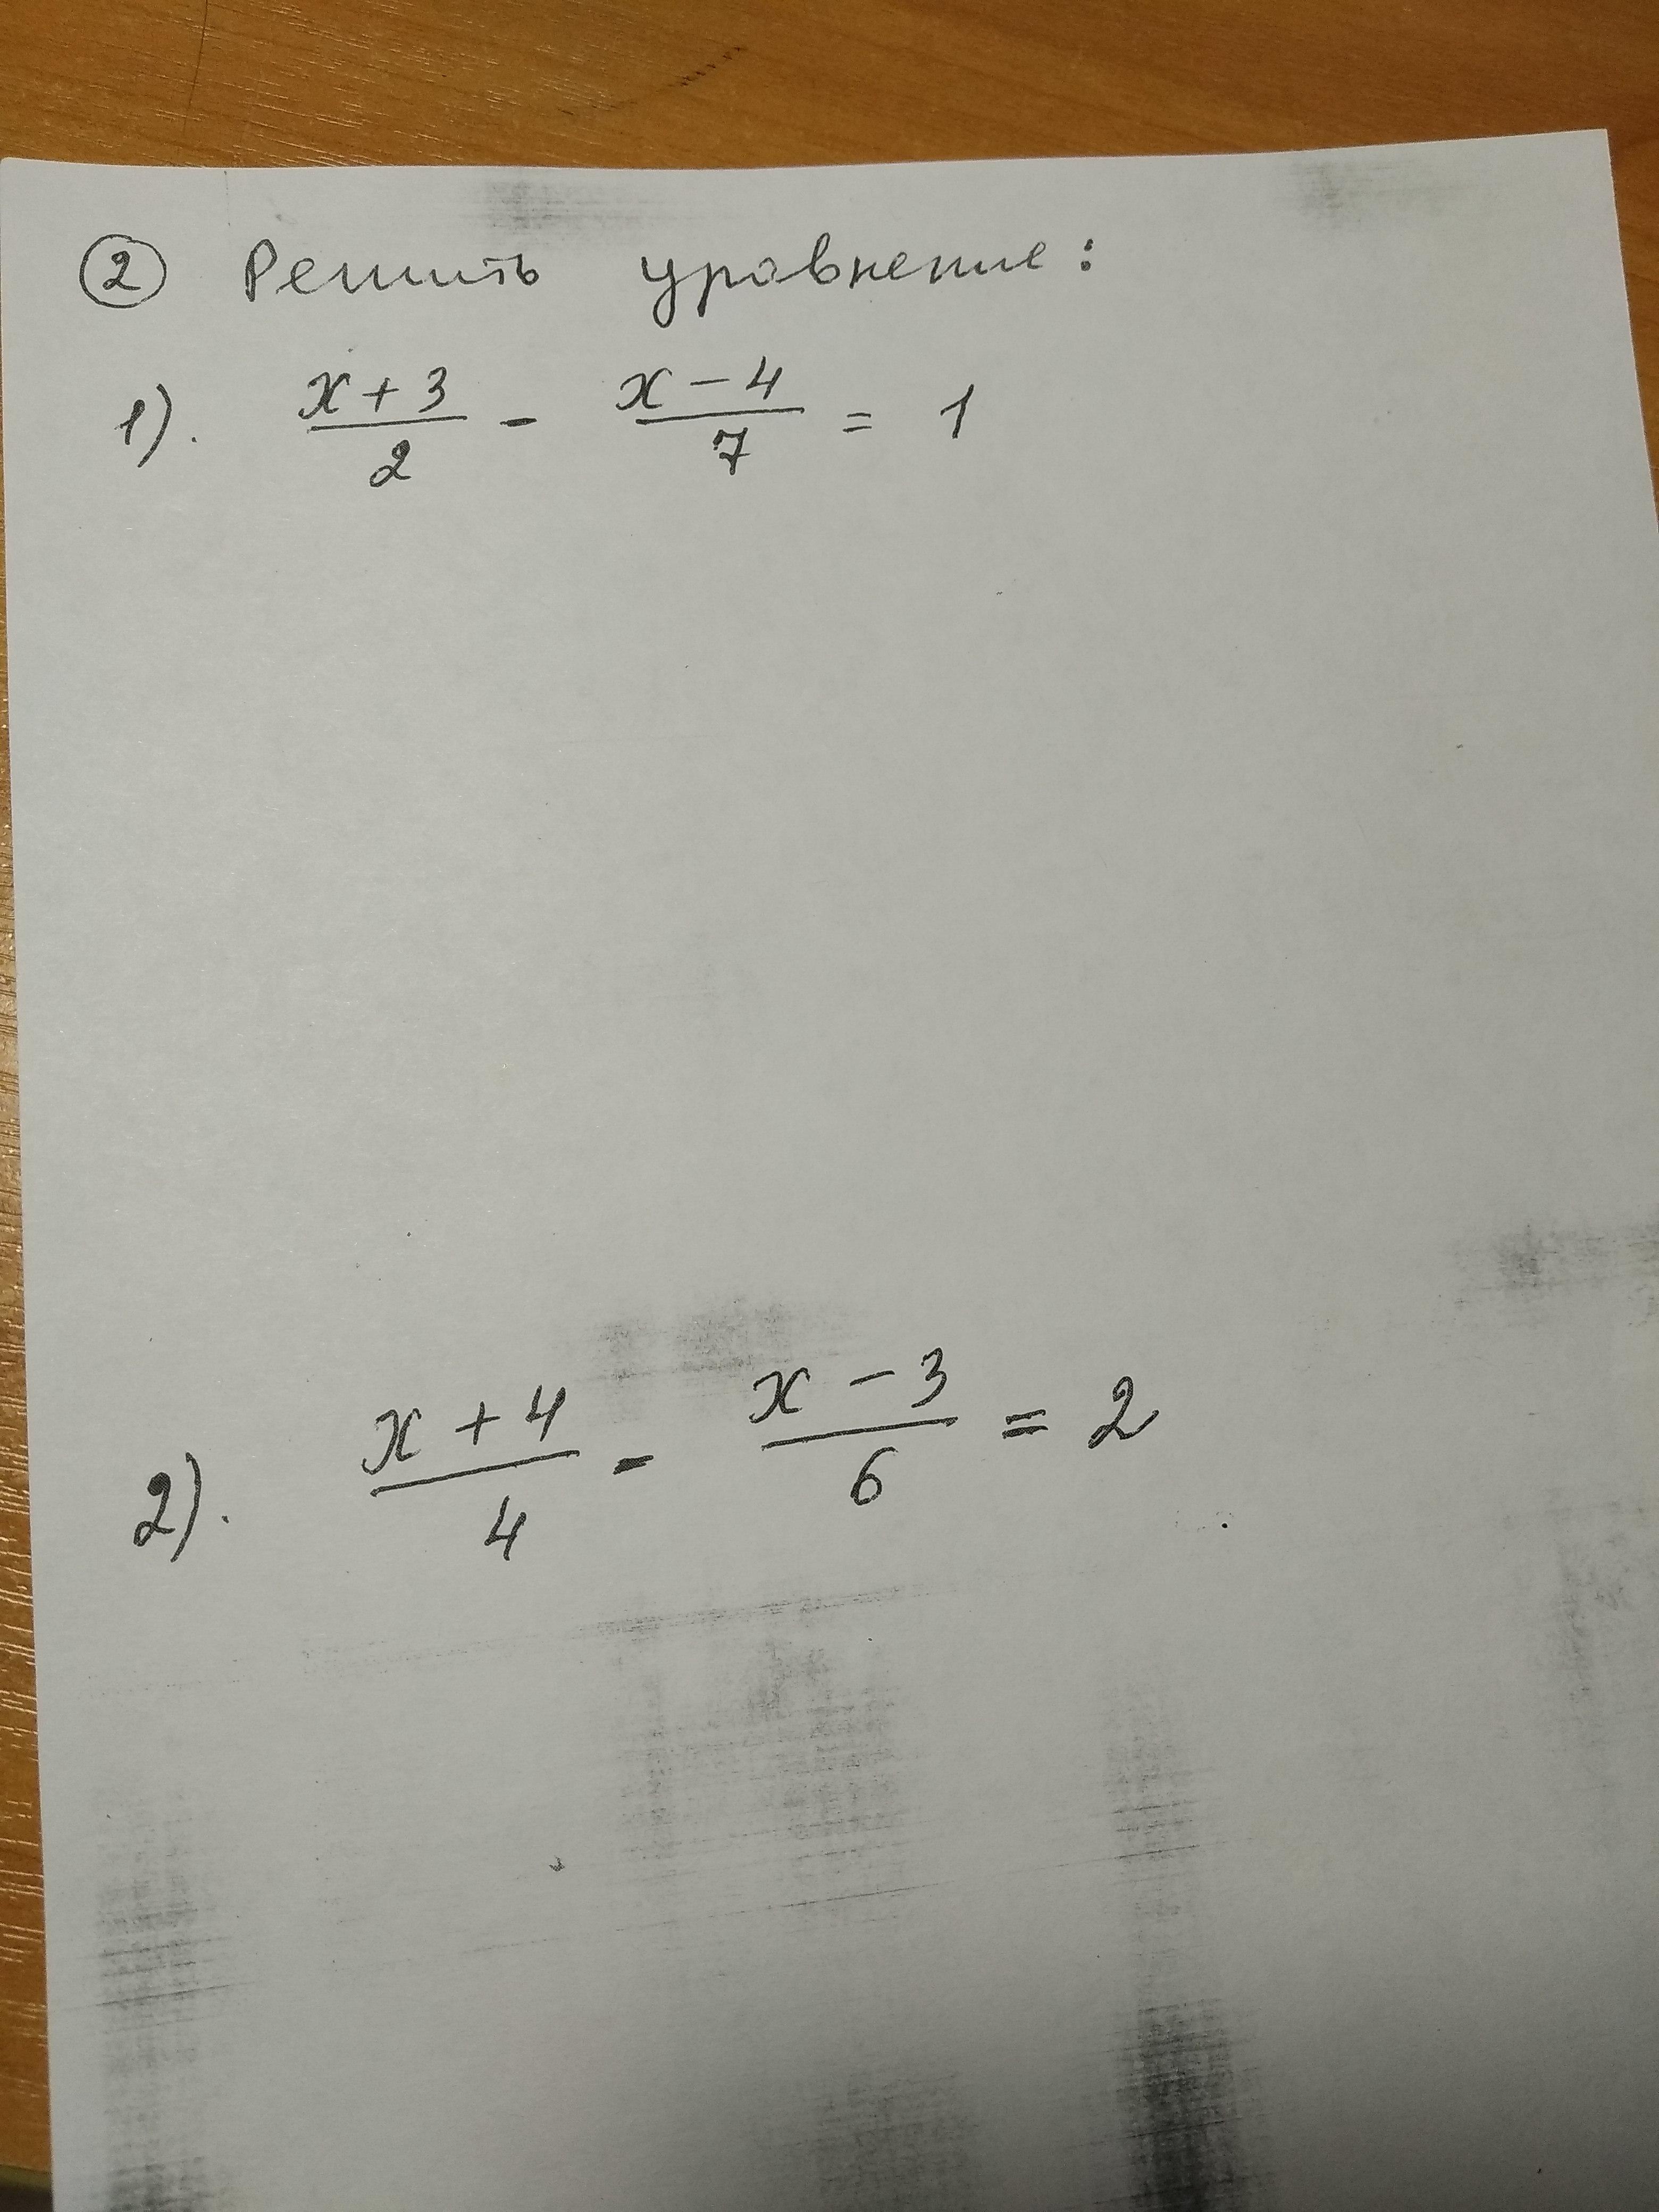 ② Решить уравнение:
1). (x+3)/2 - (x-4)/7 = 1
2). (x+4)/4 - (x-3)/6 = 2